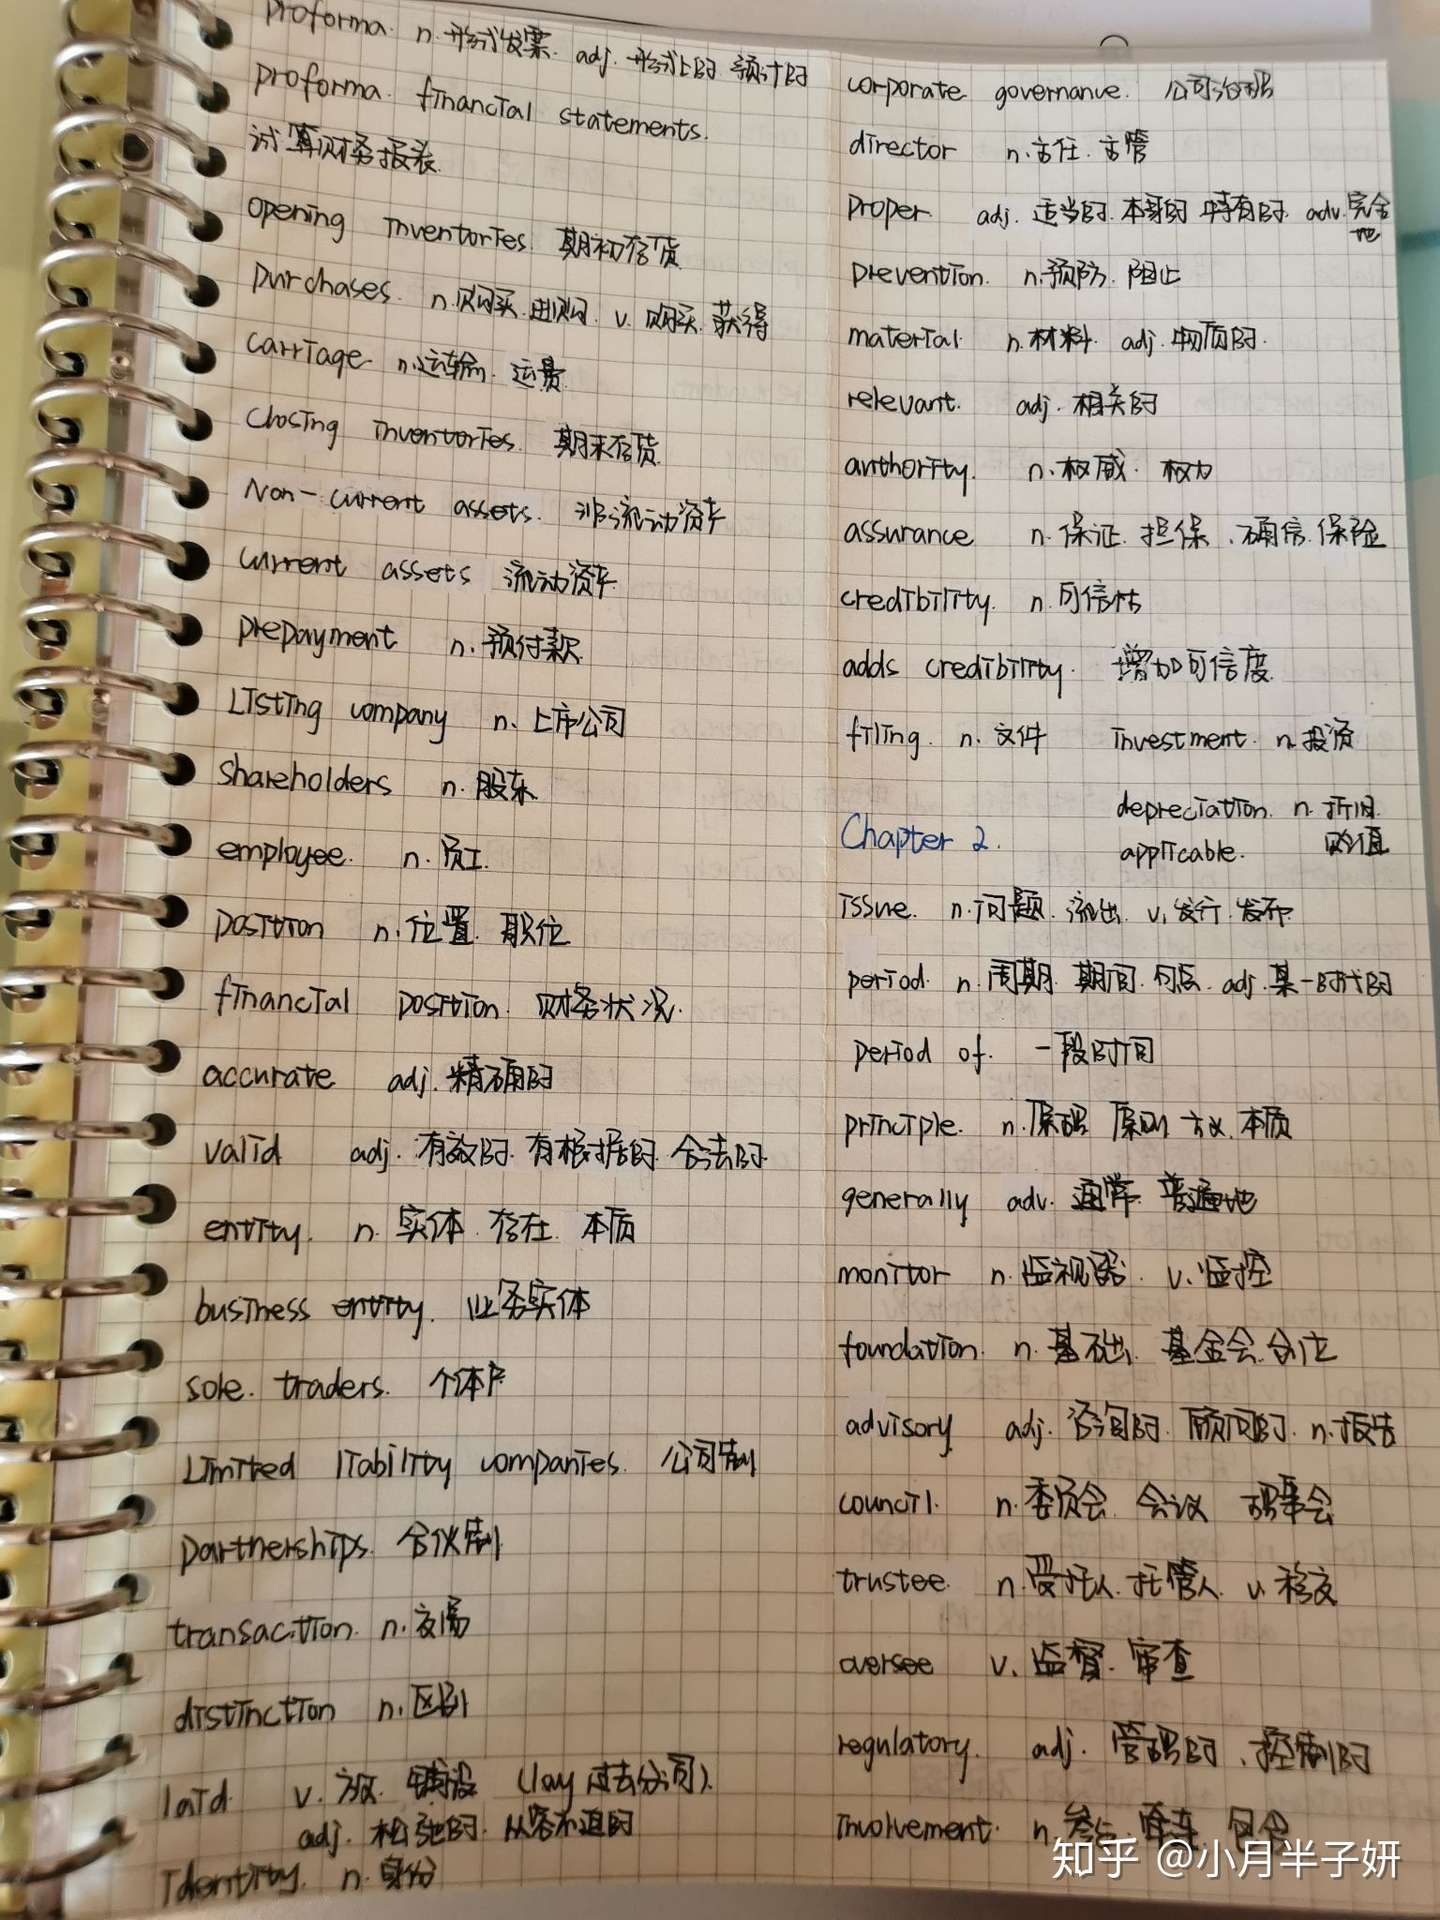 proforma. n. 形式发票. adj. 形式上的 预计的
proforma. financial statements.
试算财务报表.
opening inventories. 期初存货
purchases. n. 购买. 进购. v. 购买. 获得
carriage n. 运输. 运费.
closing inventories. 期末存货.
Non-current assets. 非流动资产
current assets 流动资产.
prepayment n. 预付款
Listing company n. 上市公司
shareholders n. 股东
employee. n. 员工.
position n. 位置. 职位
financial position. 财务状况.
accurate adj. 精确的
valid adj. 有效的. 有根据的. 合法的.
entity. n. 实体. 存在. 本质
business entity. 业务实体
sole. traders. 个体户
Limited liability companies. 公司制
partnerships. 合伙制
transaction. n. 交易
distinction n. 区别
laid. v. 放. 铺设 (lay 过去分词).
adj. 松弛的. 从容不迫的
identity. n. 身份
corporate governance. 公司治理
director n. 主任. 主管
proper. adj. 适当的. 本身的 特有的. adv. 完全地
prevention. n. 预防. 阻止
material. n. 材料. adj. 物质的.
relevant. adj. 相关的
authority. n. 权威. 权力
assurance n. 保证. 担保. 确信. 保险
credibility. n. 可信性
adds credibility. 增加可信度.
filing. n. 文件 investment. n. 投资
depreciation. n. 折旧.
Chapter 2. applicable. 贬值
issue. n. 问题. 流出. v. 发行. 发布
period. n. 周期. 期间. 句点. adj. 某一时代的
period of. 一段时间
principle. n. 原理 原则 主义. 本质
generally adv. 通常. 普遍地
monitor n. 监视器. v. 监控
foundation. n. 基础. 基金会. 创立
advisory adj. 咨询的. 顾问的. n. 报告
council. n. 委员会. 会议 理事会
trustee. n. 受托人. 托管人. v. 移交
oversee v. 监督. 审查
regulatory. adj. 管理的. 控制的
involvement. n. 参与. 牵连. 包含
知乎 @小月半子妍